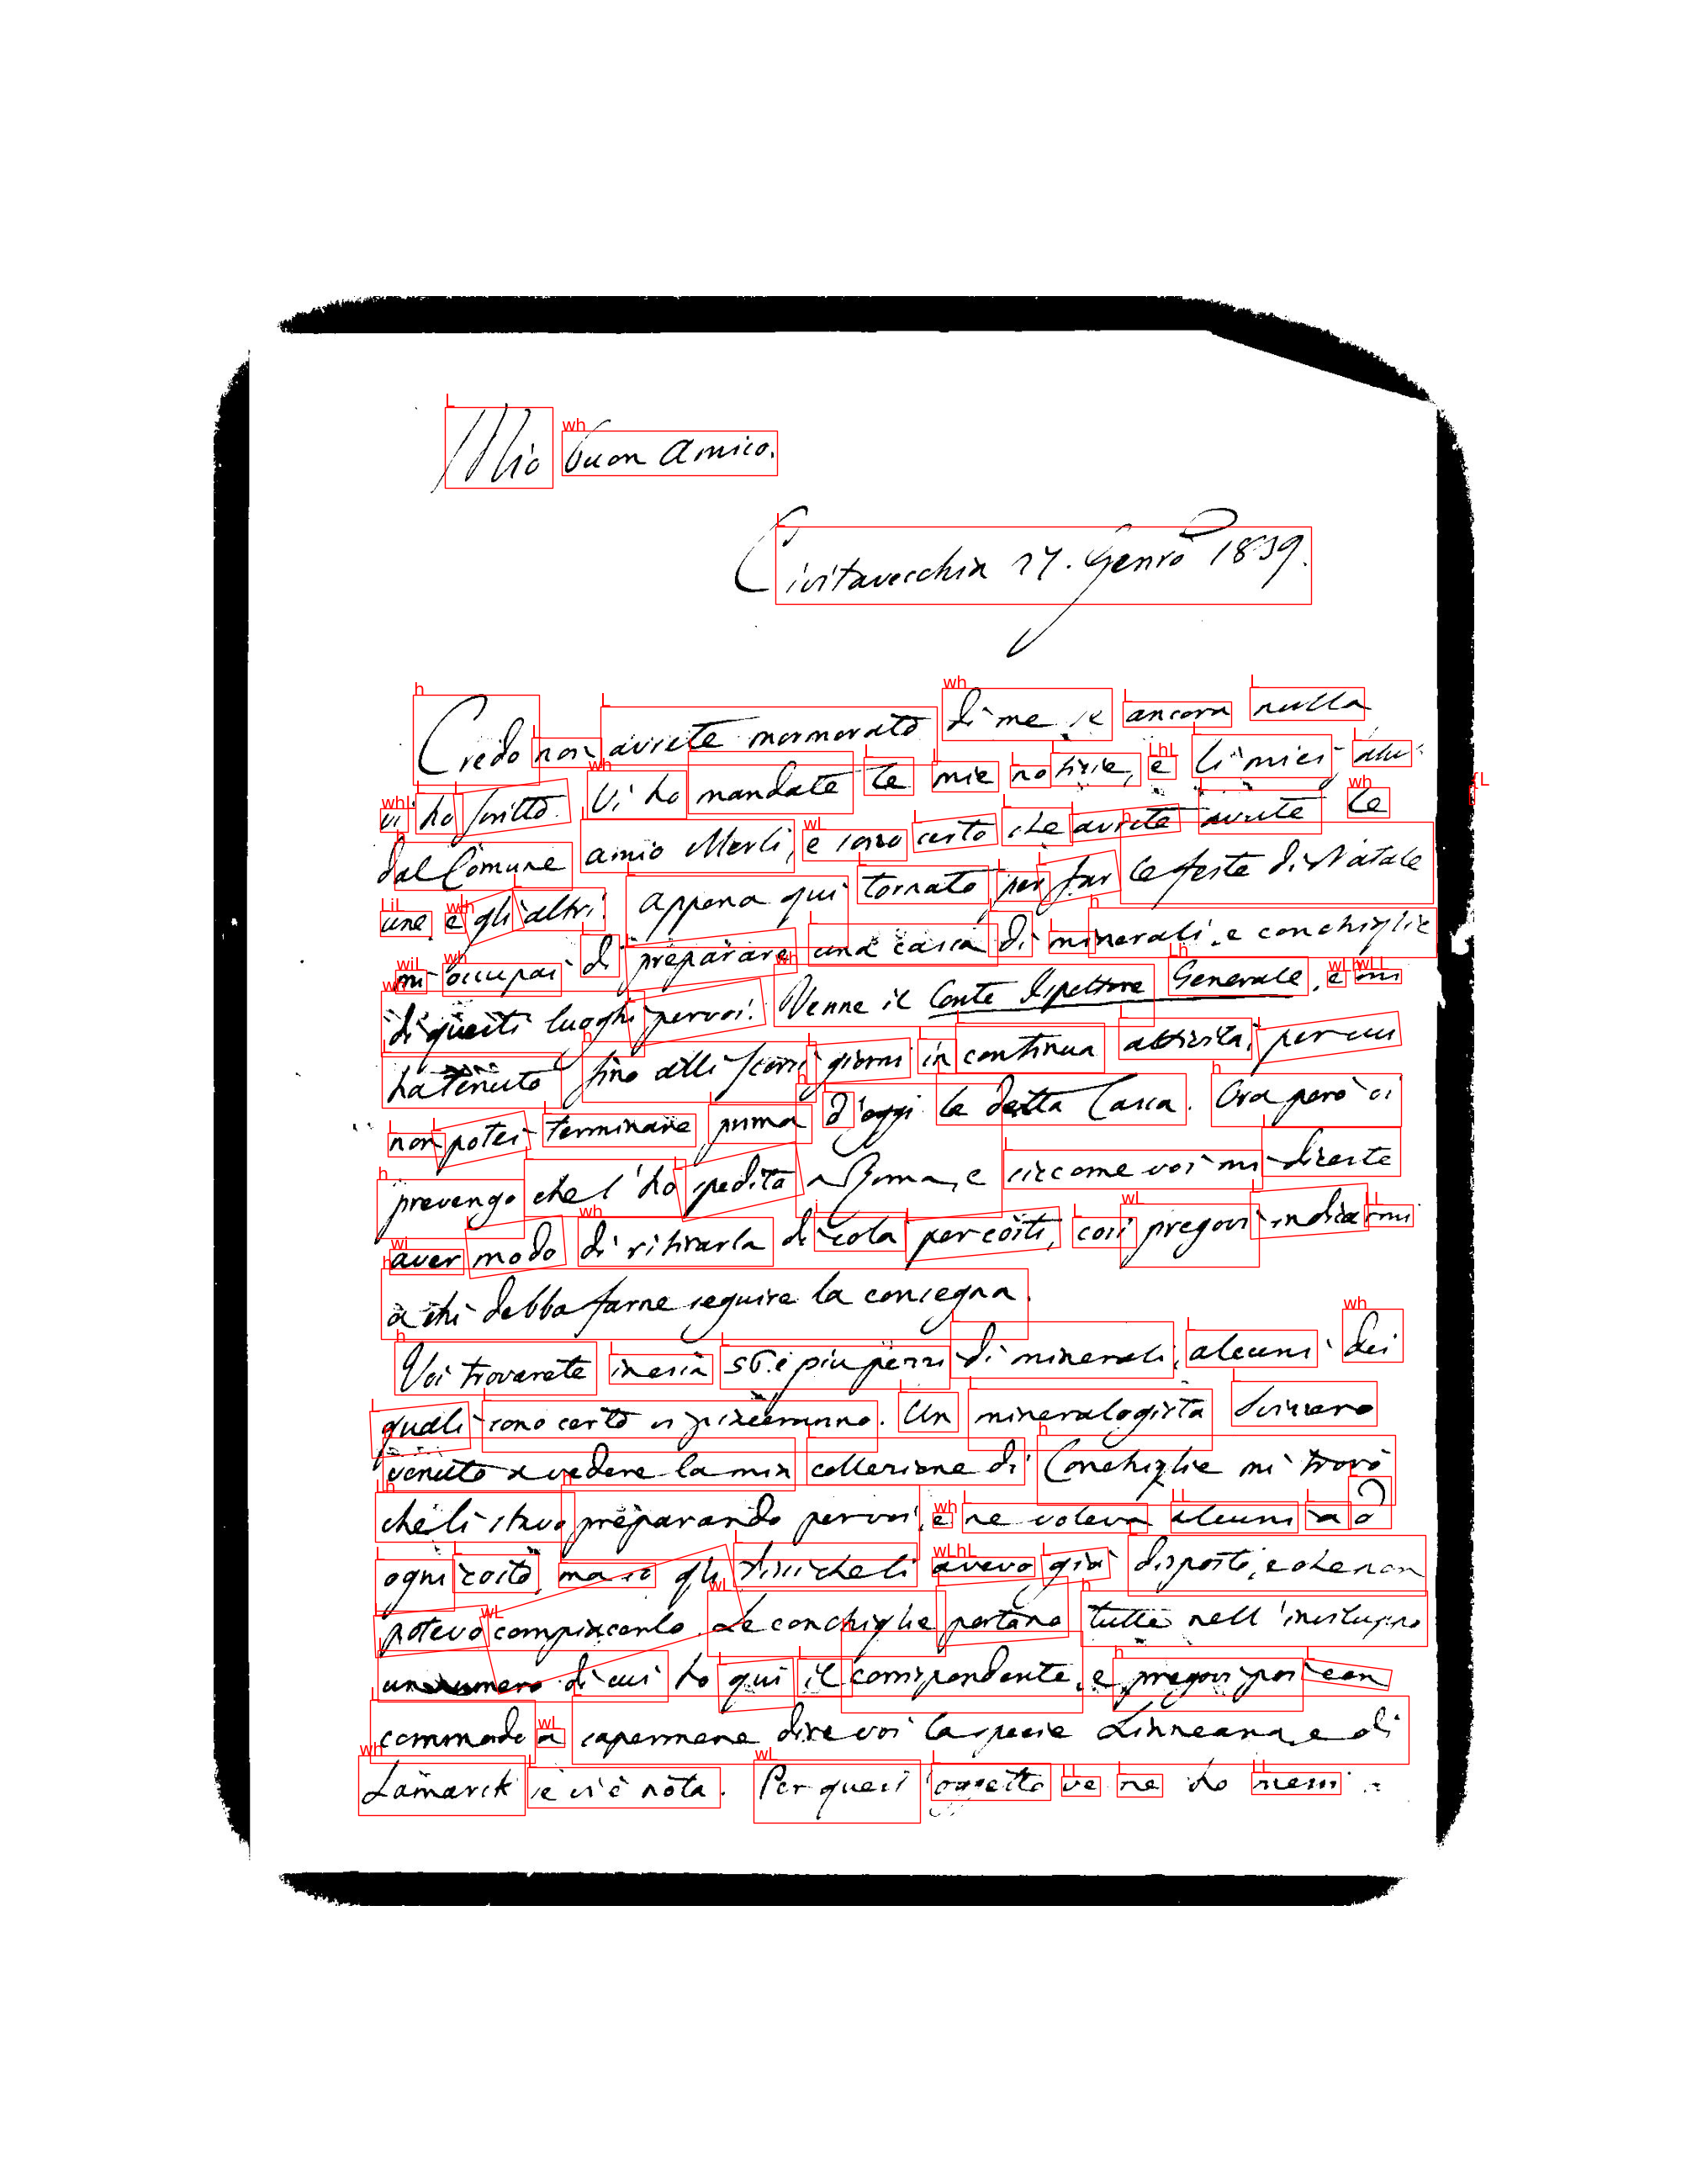 Mio buon amico.
Civitavecchia 27. Genrò 1839.
Credo non avrete mormorato di me se ancora nulla
vi ho scritto. Vi ho mandate le mie notizie, e li miei
dal Comune amico Merli, e sono certo che avrete avute le
une e gli altri. Appena qui tornato per far le feste di Natale
mi occupai di preparare una cassa di minerali, e conchiglie
di questi luoghi per voi. Venne il Conte Ispettore Generale, e mi
ha tenuto fino alli scorsi giorni in continua attività, per cui
non potei terminare prima d'oggi la detta Cassa. Ora però vi
prevengo che l'ho spedita a Roma, e siccome voi mi diceste
aver modo di ritirarla di cola per costì, così pregovi indicarmi
a chi debba farne seguire la consegna.
Voi trovarete in essa 56. e più pezzi di minerali, alcuni dei
quali sono certo vi piaceranno. Un mineralogista Svizzero
venuto a vedere la mia collezione di Conchiglie mi trovò
che li stavo preparando per voi, e ne voleva alcuni a
ogni costo, ma io gli dissi che li avevo già disposti, e che non
potevo compiacerlo. Le conchiglie portano tutte nell'inviluppo
un numero di cui ho qui il corrispondente, e pregovi poi con
commodo a sapermene dire voi la specie Linneana, e di
Lamarck se vi è nota. Per quest'oggetto ve ne ho